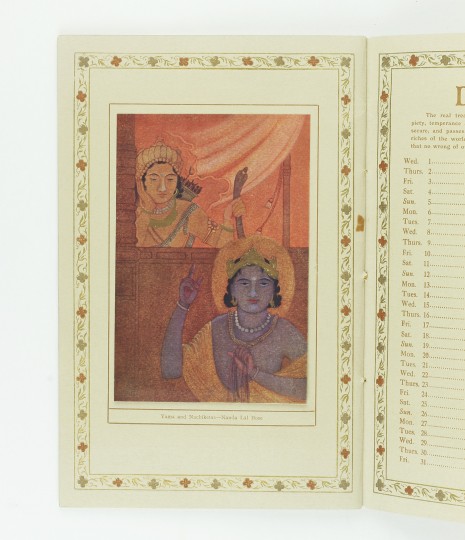 Yama and Nachiketas—Nanda Lal Bose
The real trea
piety, temperance
secure, and passes
riches of the world
that no wrong of
Wed. 1
Thurs. 2
Fri. 3
Sat. 4
Sun. 5
Mon. 6
Tues. 7
Wed. 8
Thurs. 9
Fri. 10
Sat. 11
Sun. 12
Mon. 13
Tues. 14
Wed. 15
Thurs. 16
Fri. 17
Sat. 18
Sun. 19
Mon. 20
Tues. 21
Wed. 22
Thurs. 23
Fri. 24
Sat. 25
Sun. 26
Mon. 27
Tues. 28
Wed. 29
Thurs. 30
Fri. 31